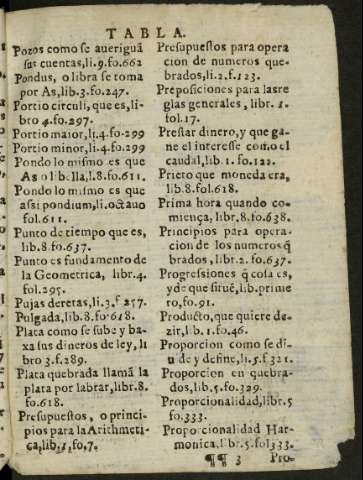 TABLA.
Pozos como se aueriguã
sus cuentas,li.9.fo.662
Pondus, o libra se toma
por As,lib.3.fo.247.
Portio circuli, que es,li-
bro 4.fo.297.
Portio maior,li.4.fo-299
Portio minor,li.4.fo-299
Pondo lo mismo es que
As o libella,l.8.fo.611.
Pondo lo mismo es que
assi pondium,li.octauo
fol.611.
Punto de tiempo que es,
lib.8 fo.637.
Punto es fundamento de
la Geometrica, libr.4.
fol.295.
Pujas deretas,li.3.f 257.
Pulgada,lib.8.fo·618.
Plata como se sube y ba-
xa sus dineros de ley, li
bro 3.f.289.
Plata quebrada llamã la
plata por labrar,libr.8.
fo.618.
Presupuestos, o princi-
pios para la Arithmeti-
ca,lib,1,fo,7.
Presupuestos para opera
cion de numeros que-
brados,li.2.f.123.
Preposiciones para lasre
glas generales, libr. 1.
fol.17.
Prestar dinero,y que ga-
ne el interesse como el
caudal,lib.1.fo.122.
Prieto que moneda era,
lib.8.fol.618.
Prima hora quando co-
miença, libr,8.fo.638.
Principios para opera-
cion de los numeros q̃
brados, libr.2.fo.637.
Progressiones q̃ cosa es,
y de que siruē,lib.prime
ro,fo.91.
Producto,que quiere de-
zir,lib.1.fo.46.
Proporcion como se di-
uide y define,li.5.f.321.
Proporcion en quebra-
dos, lib.5.fo.329.
Proporcionalidad,libr.5
fo.333.
Proporcionalidad Har-
monica,libr.5.fol333.
¶¶ 3 Pro-